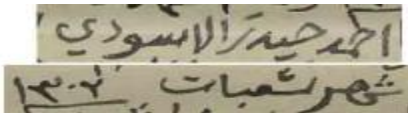 احمد حيدر الاسودي
شهر شعبان ١٣٠٢